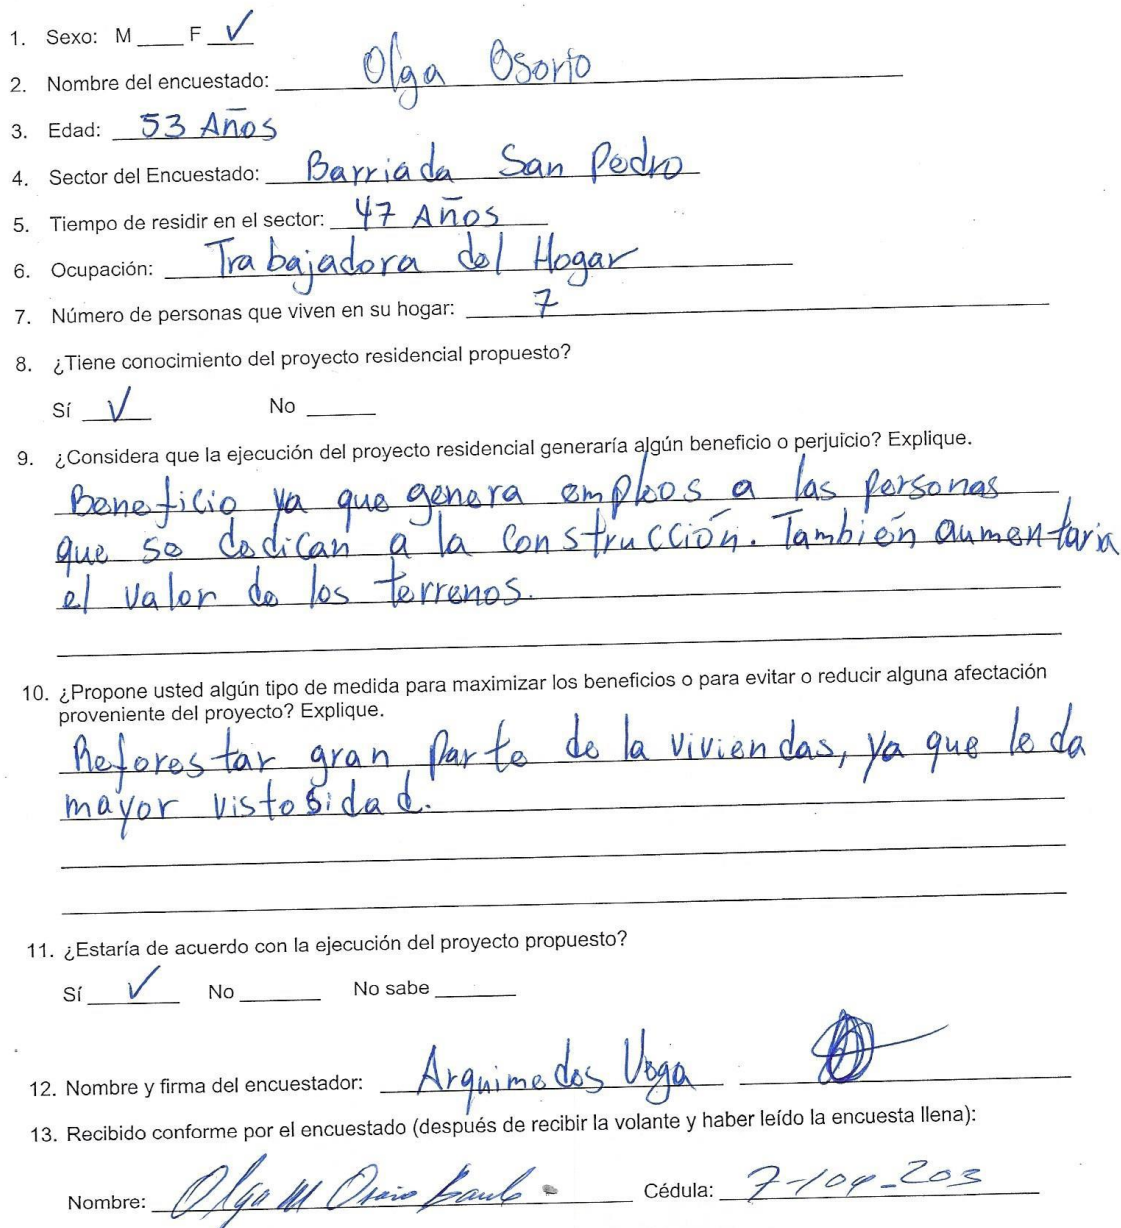 1. Sexo: M ____ F √
2. Nombre del encuestado: Olga Osorio
3. Edad: 53 Años
4. Sector del Encuestado: Barriada San Pedro
5. Tiempo de residir en el sector: 47 Años
6. Ocupación: Trabajadora del Hogar
7. Número de personas que viven en su hogar: 7
8. ¿Tiene conocimiento del proyecto residencial propuesto?
Sí √ No ____
9. ¿Considera que la ejecución del proyecto residencial generaría algún beneficio o perjuicio? Explique.
Beneficio ya que genera empleos a las personas
que se dedican a la construcción. También aumentaria
el valor de los terrenos.
10. ¿Propone usted algún tipo de medida para maximizar los beneficios o para evitar o reducir alguna afectación
proveniente del proyecto? Explique.
Reforestar gran parte de la viviendas, ya que le da
mayor vistosidad.
11. ¿Estaría de acuerdo con la ejecución del proyecto propuesto?
Sí √ No ____ No sabe ____
12. Nombre y firma del encuestador: Arquimedes Vega
13. Recibido conforme por el encuestado (después de recibir la volante y haber leído la encuesta llena):
Nombre: Olga M Osorio Cédula: 7-104-203